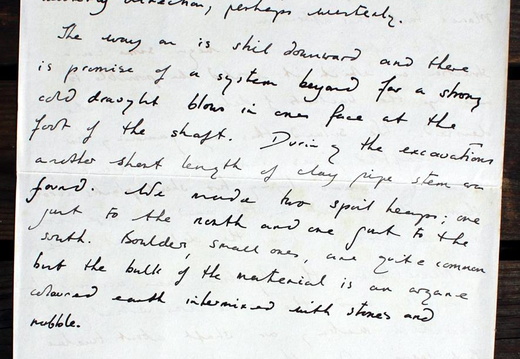 direction, perhaps westerly.
The way on is still downward and there
is promise of a system beyond for a strong
cold draught blows in ones face at the
foot of the shaft. During the excavations
another short length of clay pipe stem was
found. We made two spoil heaps; one
just to the north and one just to the
south. Boulders, small ones, are quite common
but the bulk of the material is an orange
coloured earth intermixed with stones and
rubble.